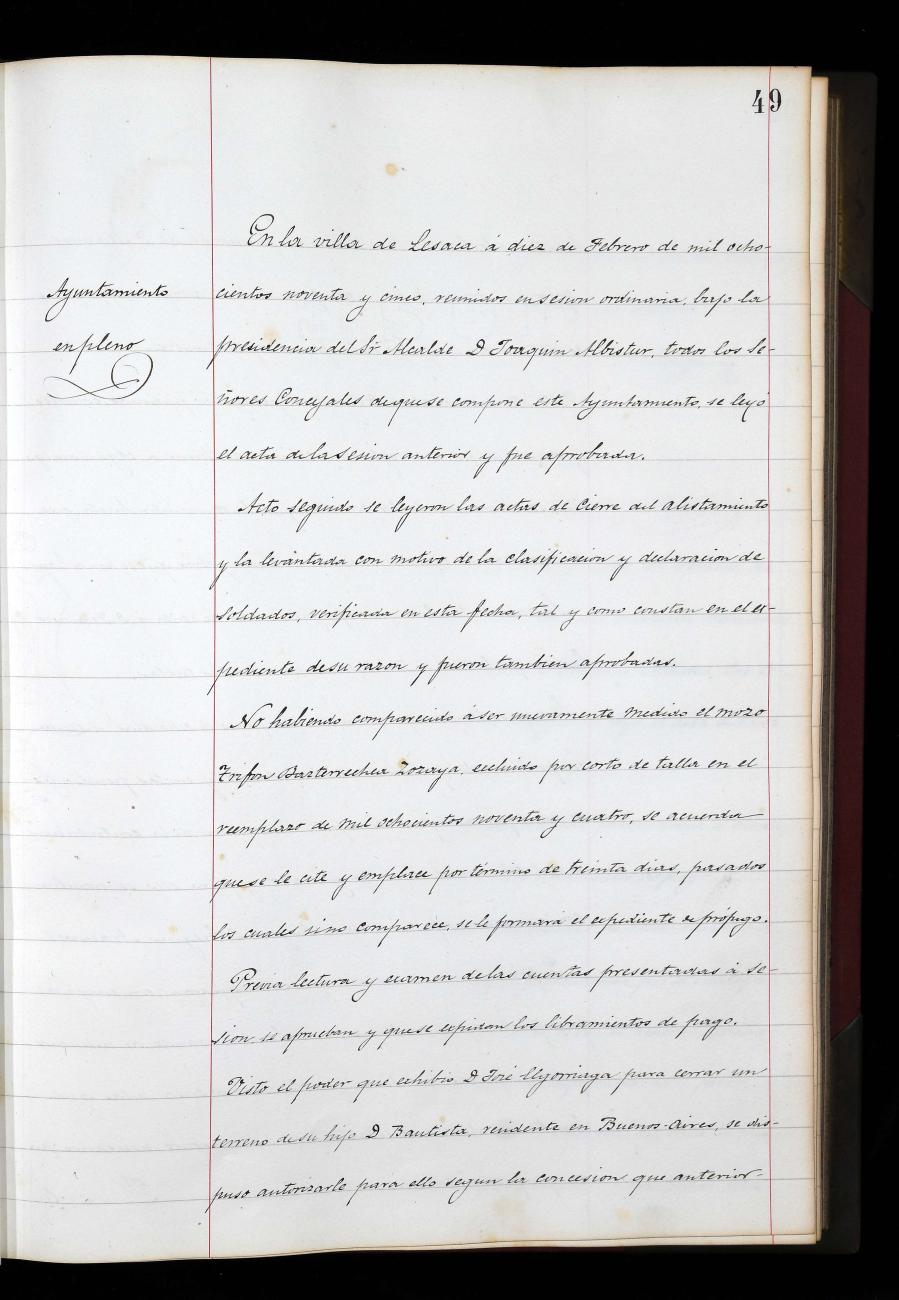 49
En la villa de Lesaca á diez de Febrero de mil ocho-
Ayuntamiento
en pleno
cientos noventa y cinco, reunidos en sesion ordinaria, bajo la
presidencia del Sr Alcalde D Joaquin Albistur, todos los Se-
ñores Concejales de que se compone este Ayuntamiento, se leyó
el acta de la Sesion anterior y fue aprobada.
Acto seguido se leyeron las actas de Cierre del alistamiento
y la levantada con motivo de la clasificacion y declaracion de
soldados, verificada en esta fecha, tal y como constan en el ex-
pediente de su razon y fueron tambien aprobadas.
No habiendo comparecido á ser nuevamente medido el mozo
Trifon Bazterrechea Zozaya, excluido por corto de talla en el
reemplazo de mil ochocientos noventa y cuatro, se acuerda
que se le cite y emplace por término de treinta dias, pasados
los cuales sino comparece, se le formará el expediente de prófugo.
Previa lectura y examen de las cuentas presentadas á se-
sion se aprueban y que se expidan los libramientos de pago.
Visto el poder que exhibio D José para cerrar un
terreno de su hijo D Bautista, residente en Buenos-Aires, se dis-
puso autorizarle para ello segun la concesion que anterior-